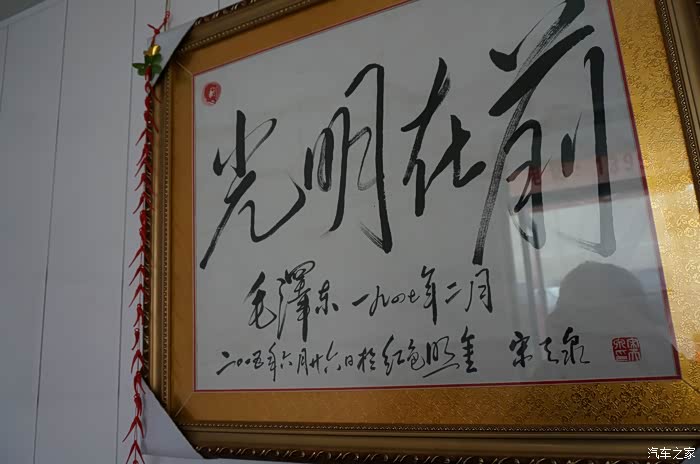 光明在前
毛澤东 一九四七年二月
二〇〇五年六月廿六日於红色照金 宋天泉
汽车之家